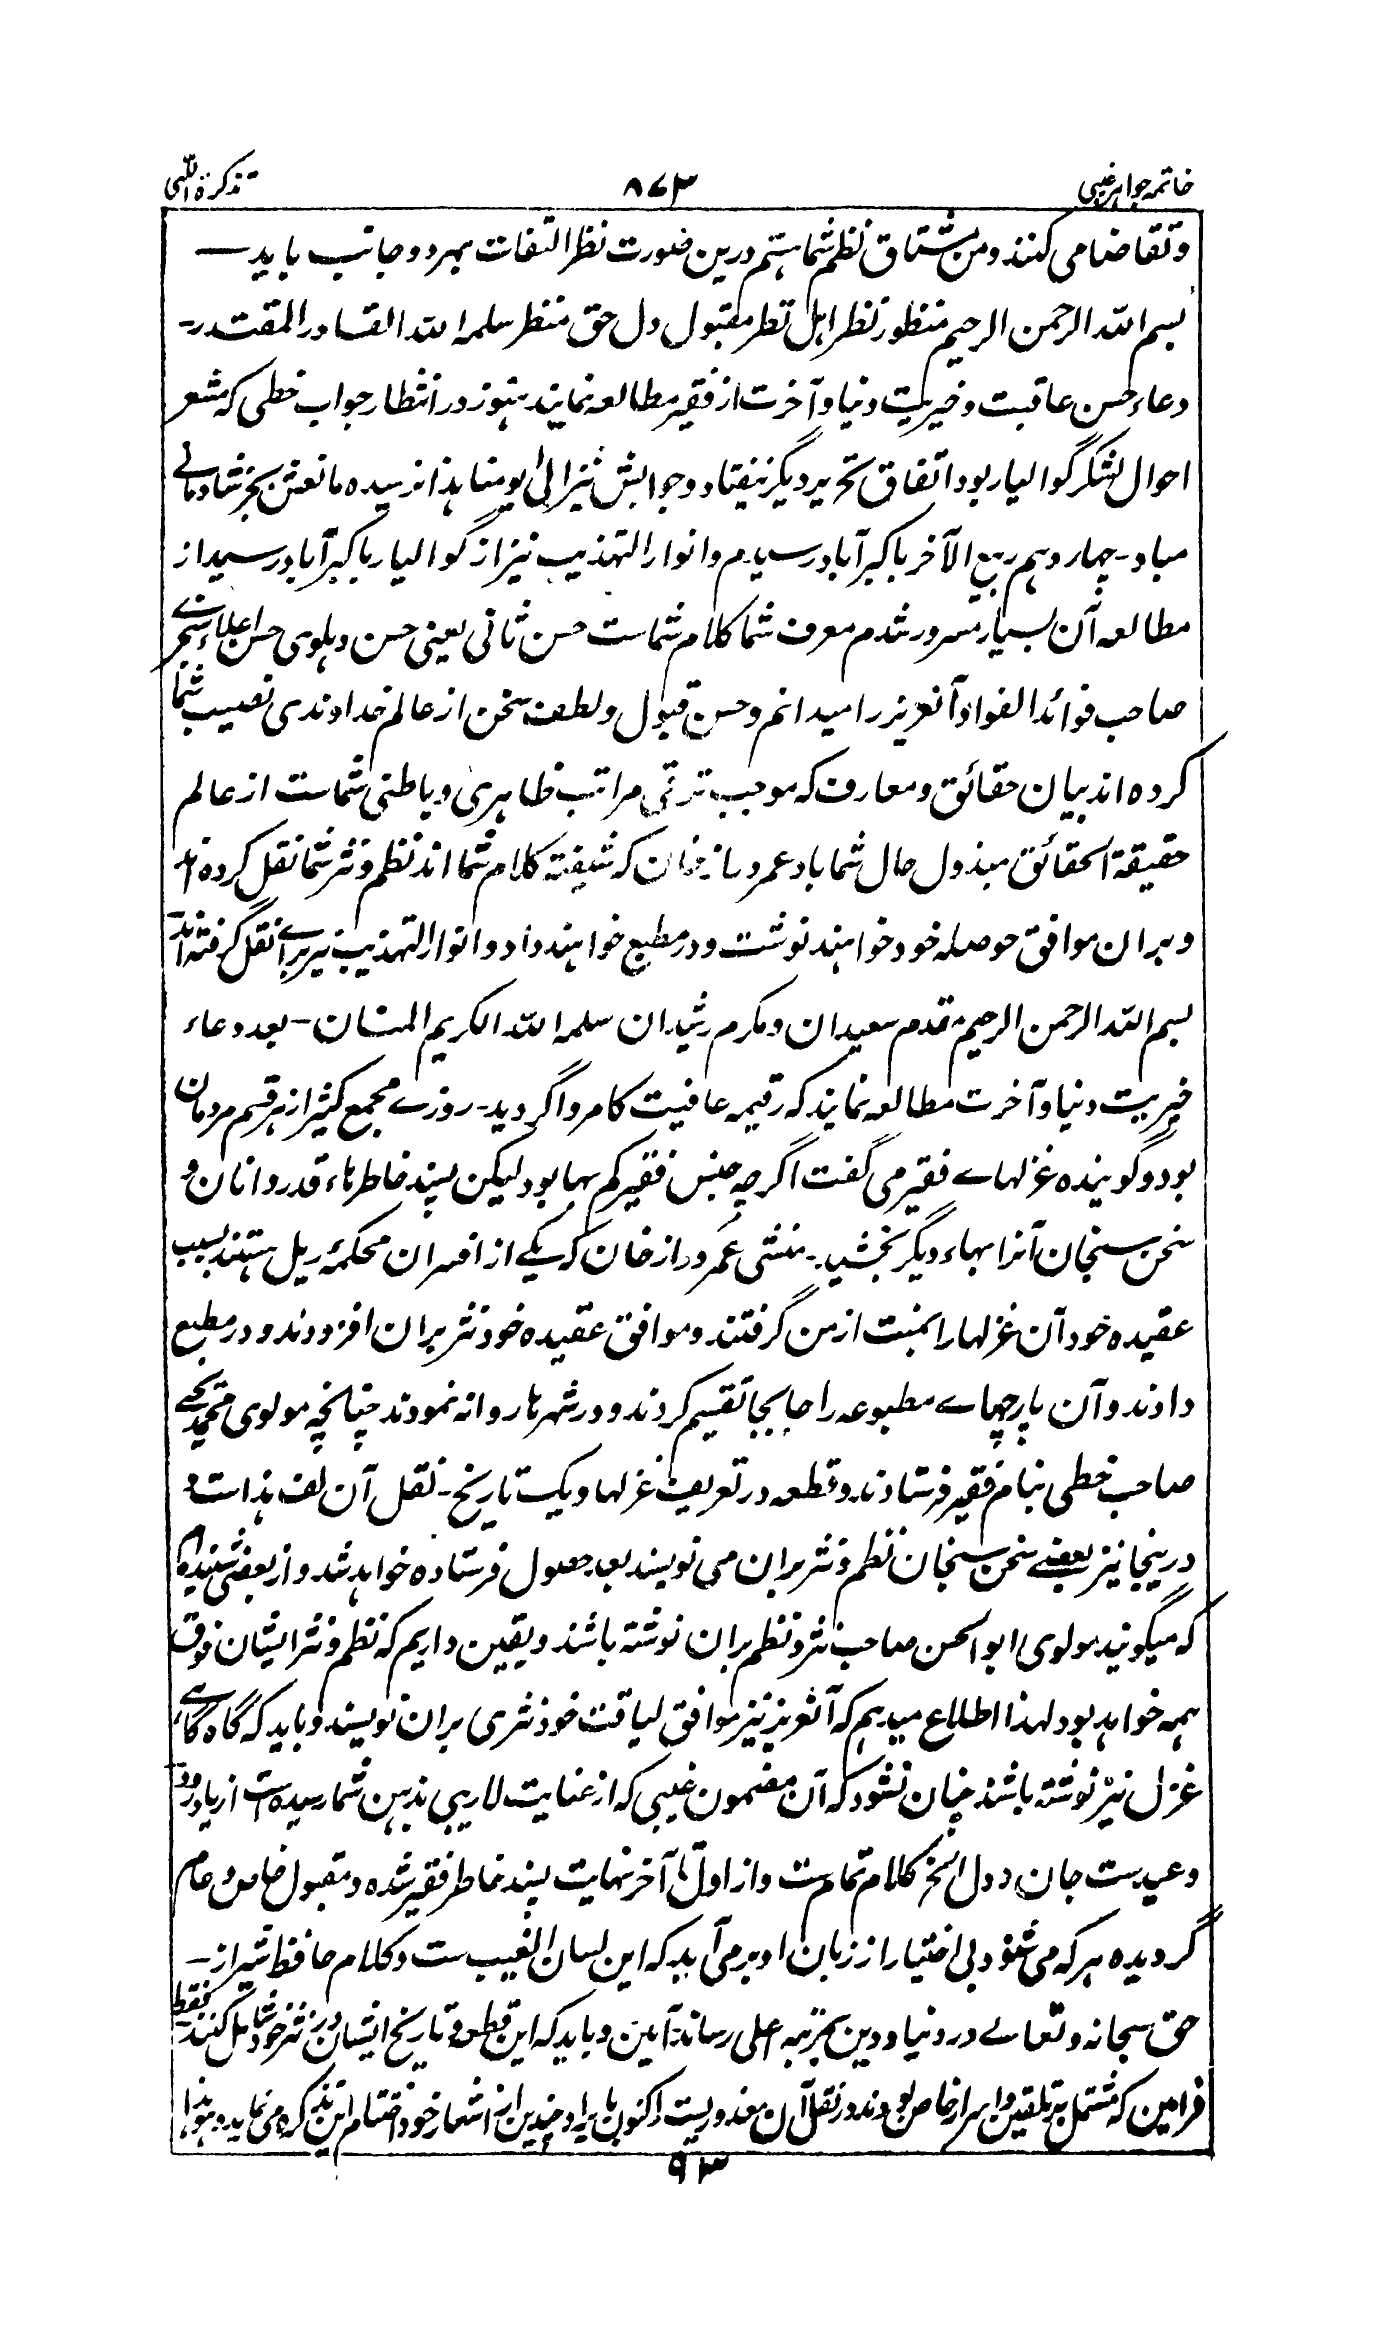 خاتمه جواهر غیبی
۸۶۳
تذکرة اللّهی
وتقاضا می کنند و من مشتاق نظم شما هستم درین صورت نظر التفات بهر دو جانب باید —
بسم الله الرحمن الرحیم منظور نظر اهل نظر مقبول دل حق منظر سلمه الله القادر المقتدر -
دعاء حسن عاقبت و خیریت دنیا و آخرت از فقیر مطالعه نمایند هنوز در انتظار جواب خطی که مشعر
احوال لشکر گوالیار بود اتفاق تحریر دیگر نیفتاد و جوابش نیز الی یومنا هذا نرسیده مانعش بجز شادمانی
مباد - چهاردهم ربیع الآخر باکبرآباد رسیدم و انوار التهذیب نیز از گوالیار باکبرآباد رسید از
مطالعه آن بسیار مسرور شدم معرف شما کلام شماست حسن ثانی یعنی حسن دهلوی حسن علاء سنجری
صاحب فوائد الفواد آنعزیز را میدانم و حسن قبول و لطف سخن از عالم خداوندی نصیب شما
کرده اند بیان حقائق و معارف که موجب ترقی مراتب ظاهری و باطنی شماست از عالم
حقیقة الحقائق مبذول حال شما باد عمر دراز خان که شیفته کلام شما اند نظم و نثر شما نقل کرده اند
و بران موافق حوصله خود خواهند نوشت و در مطبع خواهند داد و انوار التهذیب نیز برای نقل گرفته اند
بسم الله الرحمن الرحیم مقدم سعیدان و مکرم رشیدان سلمه الله الکریم المنان - بعد دعاء
خیریت دنیا و آخرت مطالعه نمایند که رقیمه عافیت کامروا گردید - روزے مجمع کثیر از هر قسم مردمان
بود و گوینده غزلهاے فقیر می گفت اگرچه جنس فقیر کم بها بود لیکن پسند خاطرهاء قدردانان و
سخن سنجان آنرا بهاء دیگر بخشید - منشی عمر دراز خان که یکے از افسران محکمهٔ ریل هستند بسبب
عقیده خود آن غزلها را بمنت از من گرفتند و موافق عقیده خود نثر بران افزودند و در مطبع
دادند و آن پارچهاے مطبوعه را جابجا تقسیم کردند و در شهرها روانه نمودند چنانچه مولوی محمد یحیے
صاحب خطی بنام فقیر فرستادند و قطعه در تعریف غزلها و یک تاریخ - نقل آن لف هذا است و
درینجا نیز بعضے سخن سنجان نظم و نثر بران می نویسند بعد حصول فرستاده خواهد شد و از بعضی شنیده ام
که میگویند مولوی ابو الحسن صاحب نثر و نظم بران نوشته باشند و یقین داریم که نظم و نثر ایشان فوق
همه خواهد بود لهذا اطلاع میدهم که آنعزیز نیز موافق لیاقت خود نثری بران نویسند و باید که گاه گاهے
غزل نیز نوشته باشند چنان نشود که آن مضمون غیبی که از عنایت لاریبی بذهن شما رسیده است از یاد رود
و عیدست جان و دل الخ کلام تمامست و از اول تا آخر نهایت پسند خاطر فقیر شده و مقبول خاص و عام
گردیده هر که می شنود بی اختیار از زبان او برمی آید که این لسان الغیب ست و کلام حافظ شیراز -
حق سبحانه و تعالے در دنیا و دین بمرتبه اعلی رساند آمین و باید که این قطعه و تاریخ ایشان در نثر خود شامل کنند - فقط
فرامین که مشتمل بر تلقین و اسرار خاص بودند در نقل آن معذوریست اکنون بایراد چندین از اشعار خود اختتام این تذکره می نماید و هو هذا
۹۳